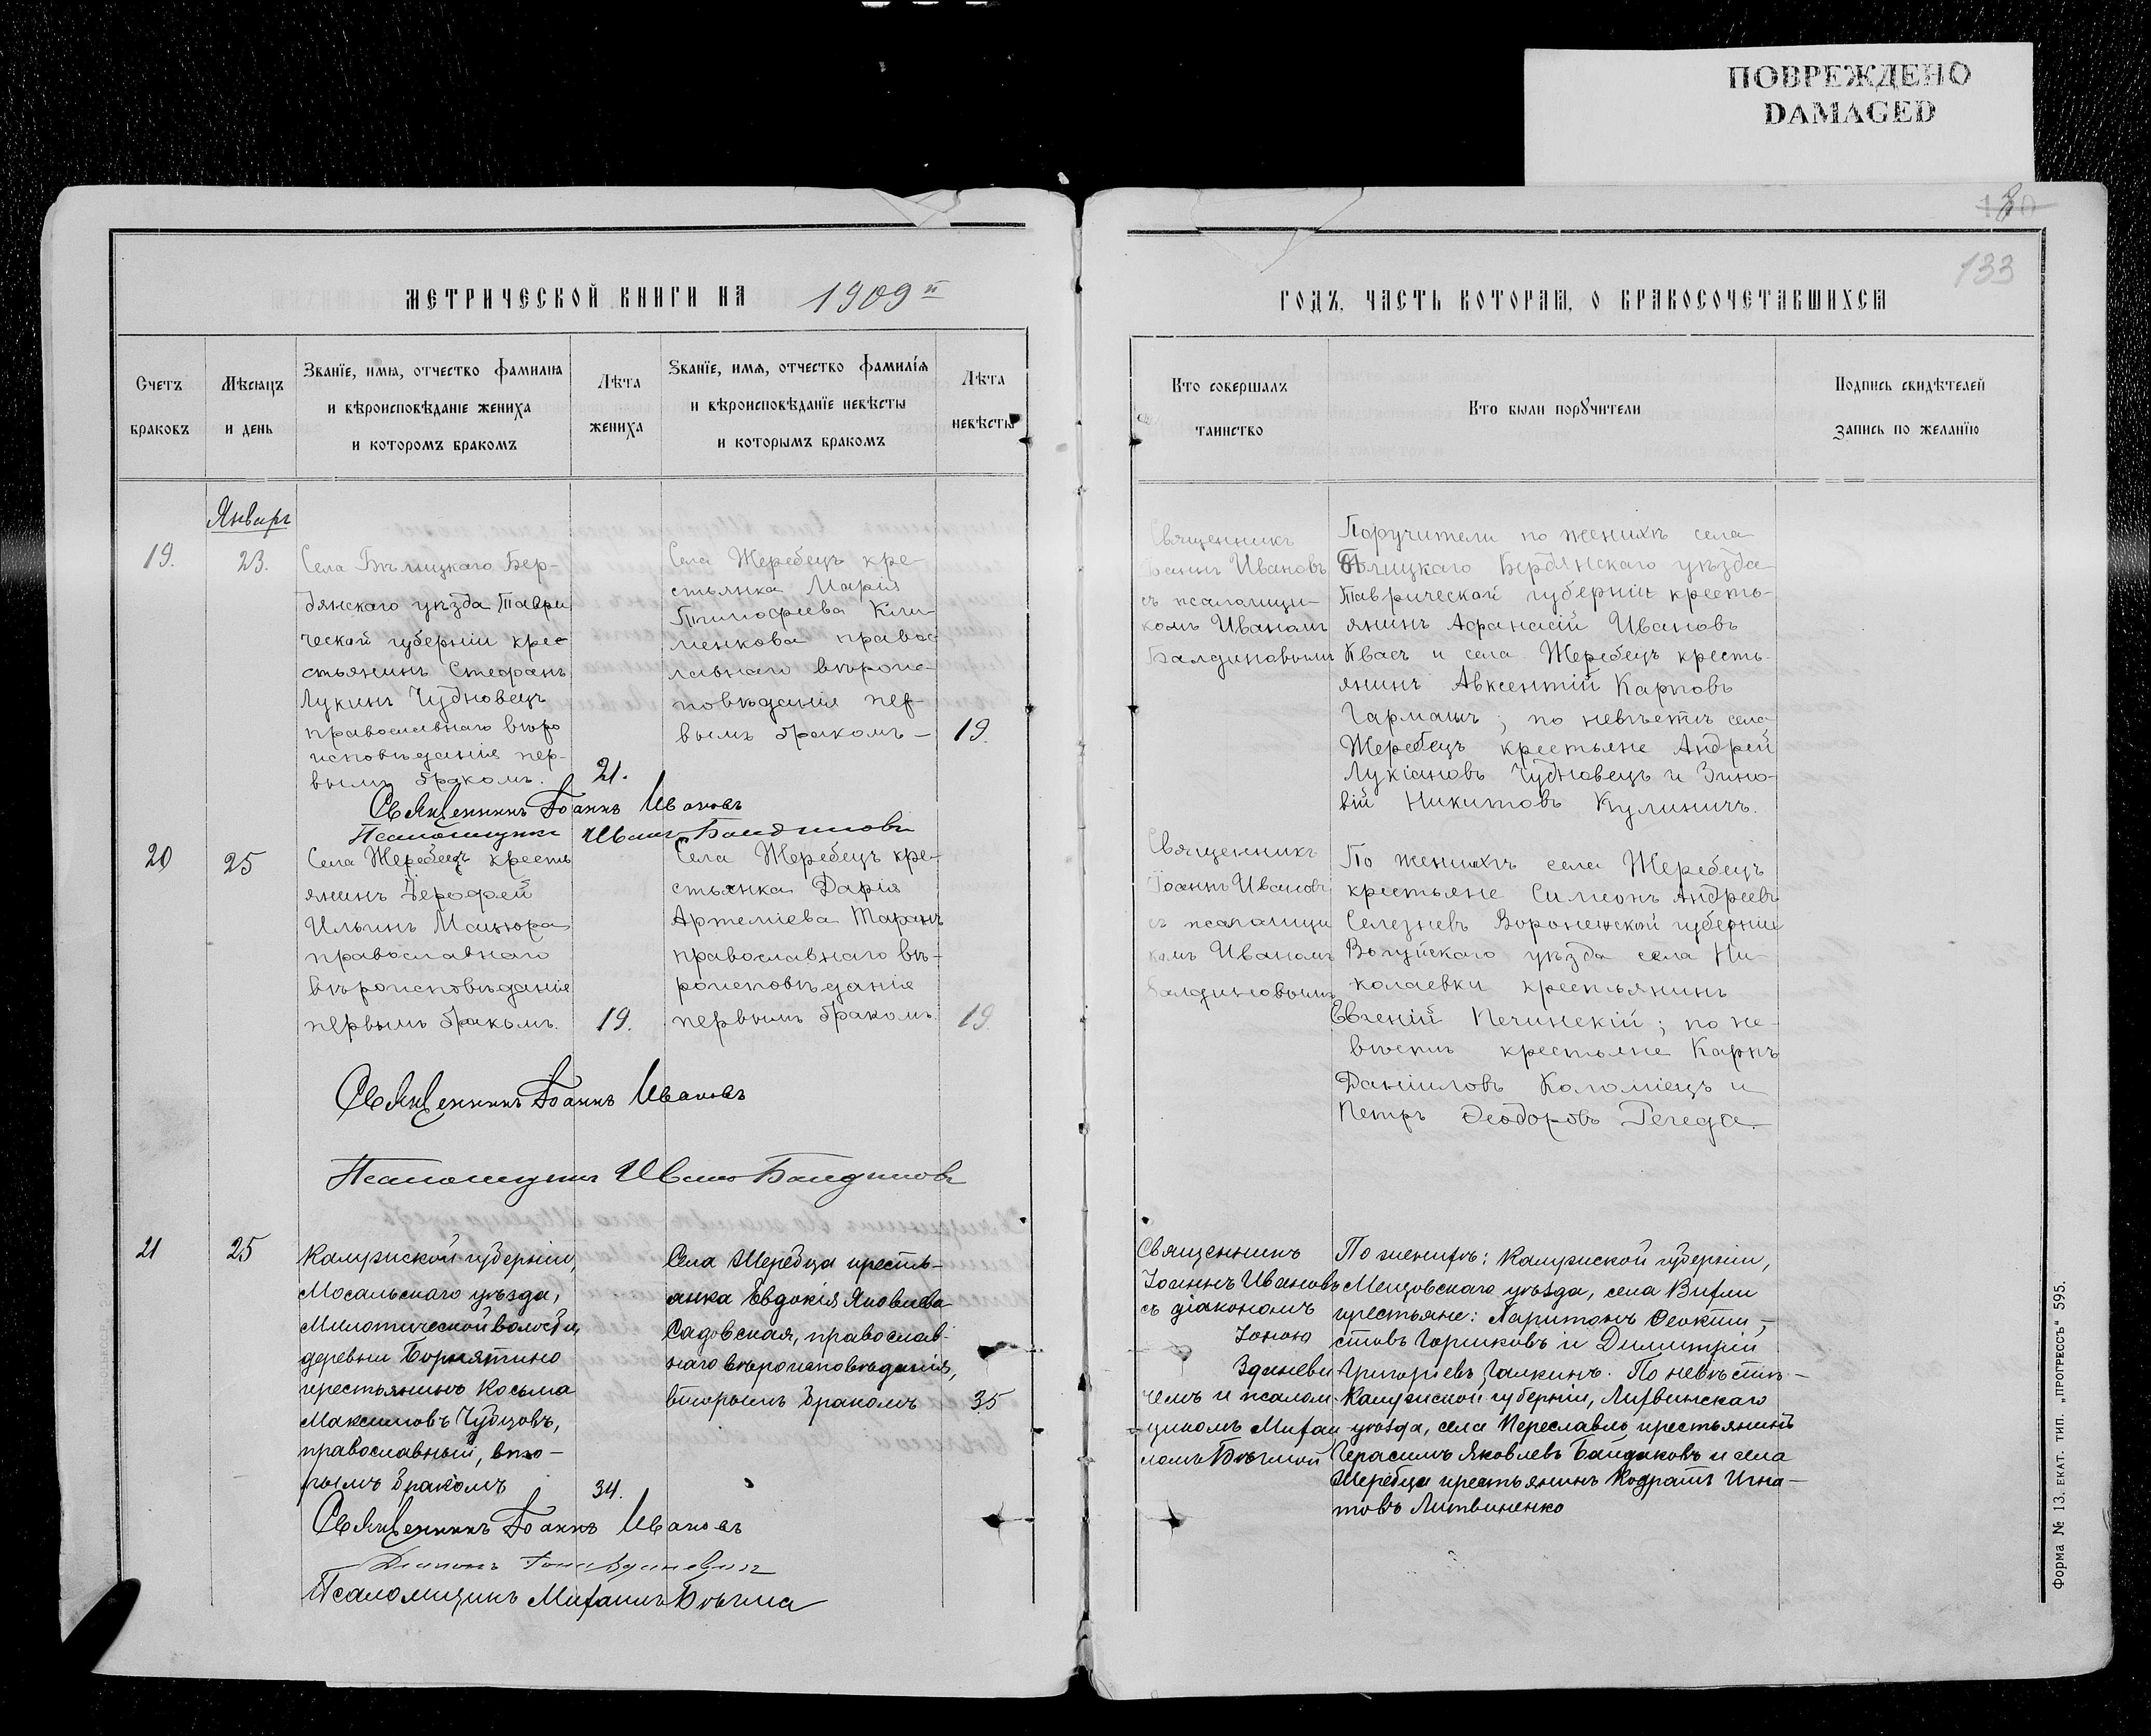 ПОВРЕЖДЕНО
DAMAGED
133
МЕТРИЧЕСКОЙ КНИГИ НА 1909й
ГОДЪ, ЧАСТЬ КОТОРАЯ, О БРАКОСОЧЕТАВШИХСЯ
Счетъ
браковъ
Мѣсяцъ
и день
Званїе, имя, отчество фамилія
и вѣроисповѣданіе жениха
и которомъ бракомъ
Лѣта
жениха
Званїе, имя, отчество фамилїя
и вѣроисповѣданїе невѣсты
и которымъ бракомъ
Лѣта
невѣсты
Кто совершалъ
таинство
Кто были порꙋчители
Подпись свидѣтелей
запись по желанїю
Январь
19.
23.
Села Бѣлицкаго Бер-
дянскаго уѣзда Таври
ческой губерніи крес
стьянинъ Стефанъ
Лукинъ Чудновецъ
православнаго вѣро
исповѣданія пер-
вымъ бракомъ.
21.
Села Жеребецъ кре-
стьянка Марія
Тимофеева Кли-
менкова правос
лавнаго вѣроис-
повѣданія пер-
вымъ бракомъ —
19.
Священникъ
Іоаннъ Ивановъ
съ псаломщи-
комъ Иваномъ
Балдиновымъ
Поручители по женихѣ села
Бѣлицкаго Бердянскаго уѣзда
Таврической губерніи кресть-
янинъ Афанасій Ивановъ
Квасъ и села Жеребецъ кресть-
янинъ Авксентій Карповъ
Гармашъ; по невѣстѣ села
Жеребецъ крестьяне Андрей
Лукіановъ Чудновецъ и Зино-
вій Никитовъ Кулиничъ.
Священникъ Іоаннъ Ивановъ
Псаломщикъ Иванъ Балдиновъ
20
25
Села Жеребецъ кресть
янинъ Іерофей
Ильинъ Мацюра
православнаго
вѣроисповѣданія
первымъ бракомъ.
19.
Села Жеребецъ кре-
стьянка Дарія
Артеміева Таранъ
православнаго вѣ-
роисповѣданія
первымъ бракомъ.
19.
Священникъ
Іоаннъ Ивановъ
съ псаломщи
комъ Иваномъ
Балдиновымъ
По женихѣ села Жеребецъ
крестьяне Симеонъ Андреевъ
Селезневъ Воронежской губерніи
Валуйскаго уѣзда села Ни-
колаевки крестьянинъ
Евгеній Печинскій; по не-
вѣстѣ крестьяне Карпъ
Даніиловъ Коломіецъ и
Петръ Ѳеодоровъ Гегеда.
Священникъ Іоаннъ Ивановъ
Псаломщикъ Иванъ Балдиновъ
21
25
Калужской губерніи,
Мосальскаго уѣзда,
волости,
деревни Борнятино
крестьянинъ Косьма
Максимовъ Чубцовъ,
православный, вто-
рымъ бракомъ
34.
Села Жеребца кресть-
анка Евдокія Яковлева
Садовская, православ-
наго вѣроисповѣданія,
вторымъ бракомъ
35
Священникъ
Іоаннъ Ивановъ
съ діакономъ
Іоною
Зданеви
чемъ и псалом-
щикомъ Михаи-
ломъ Бѣгмой
По женихѣ: Калужской губерніи,
Мещовскаго уѣзда, села
крестьяне: Харитонъ Ѳеокти-
стовъ Горшковъ и Димитрій
Григорьевъ Галкинъ. По невѣстѣ-
Калужской губерніи, Лихвинскаго
уѣзда, села Переславль крестьянинъ
Герасимъ Яковлевъ Байдаковъ и села
Жеребца крестьянинъ Кодратъ Игна-
товъ Литвиненко
Священникъ Іоаннъ Ивановъ
Діаконъ Іона Зданевичъ
Псаломщикъ Михаилъ Бѣгма
Форма № 13. ЕКАТ. ТИП. „ПРОГРЕССЪ“ 595.